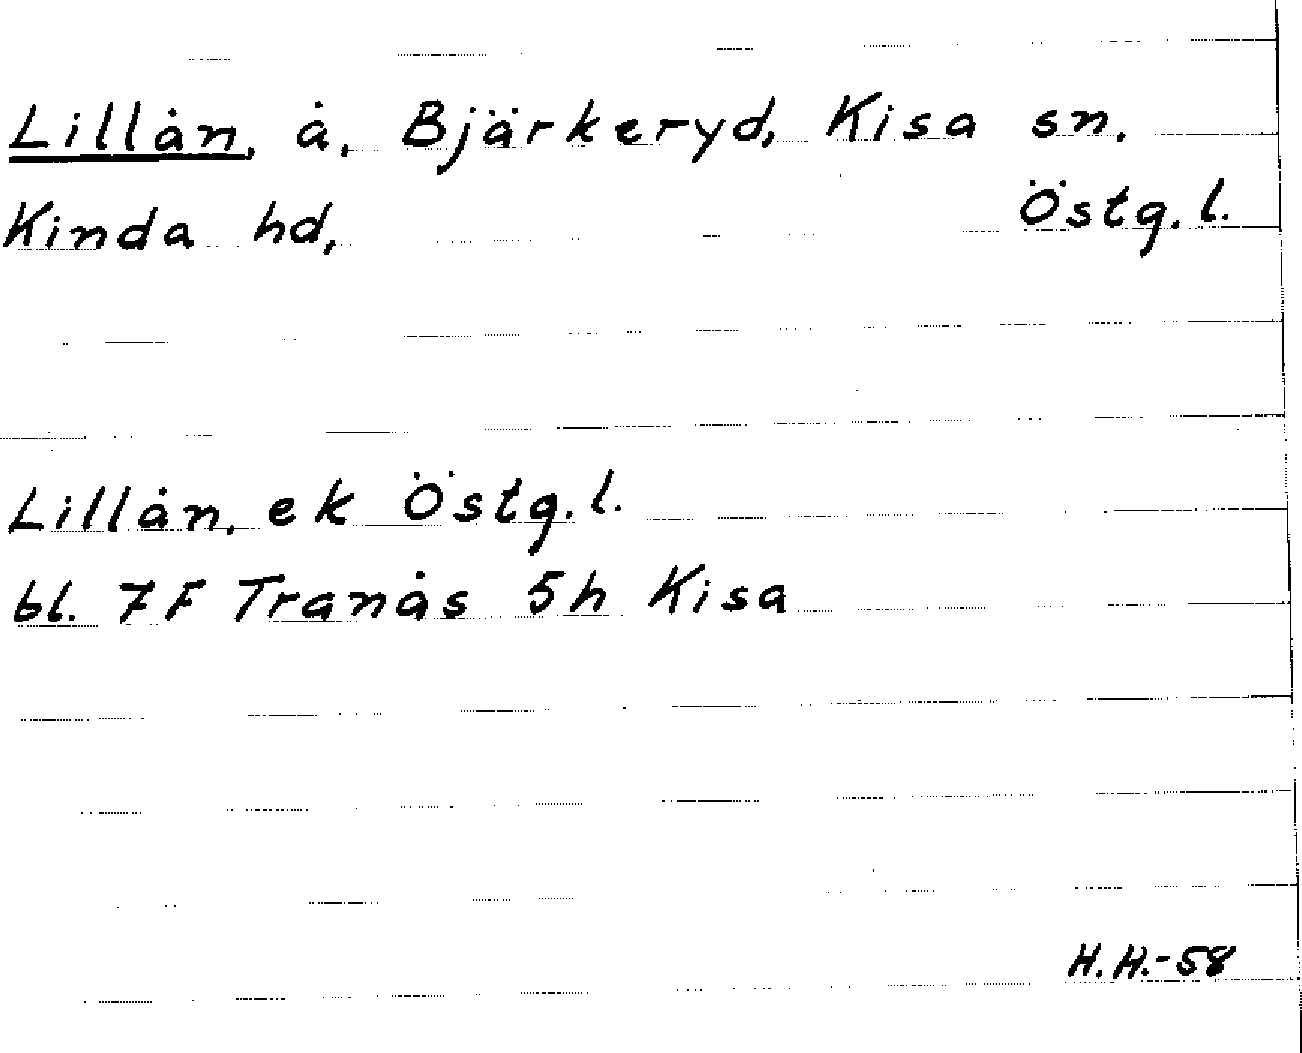 Lillån, å, Bjärkeryd, Kisa sn.
Kinda hd, Östg. l.
Lillån, ek Östg. l.
bl. 7F Tranås 5h Kisa
H.H.-58